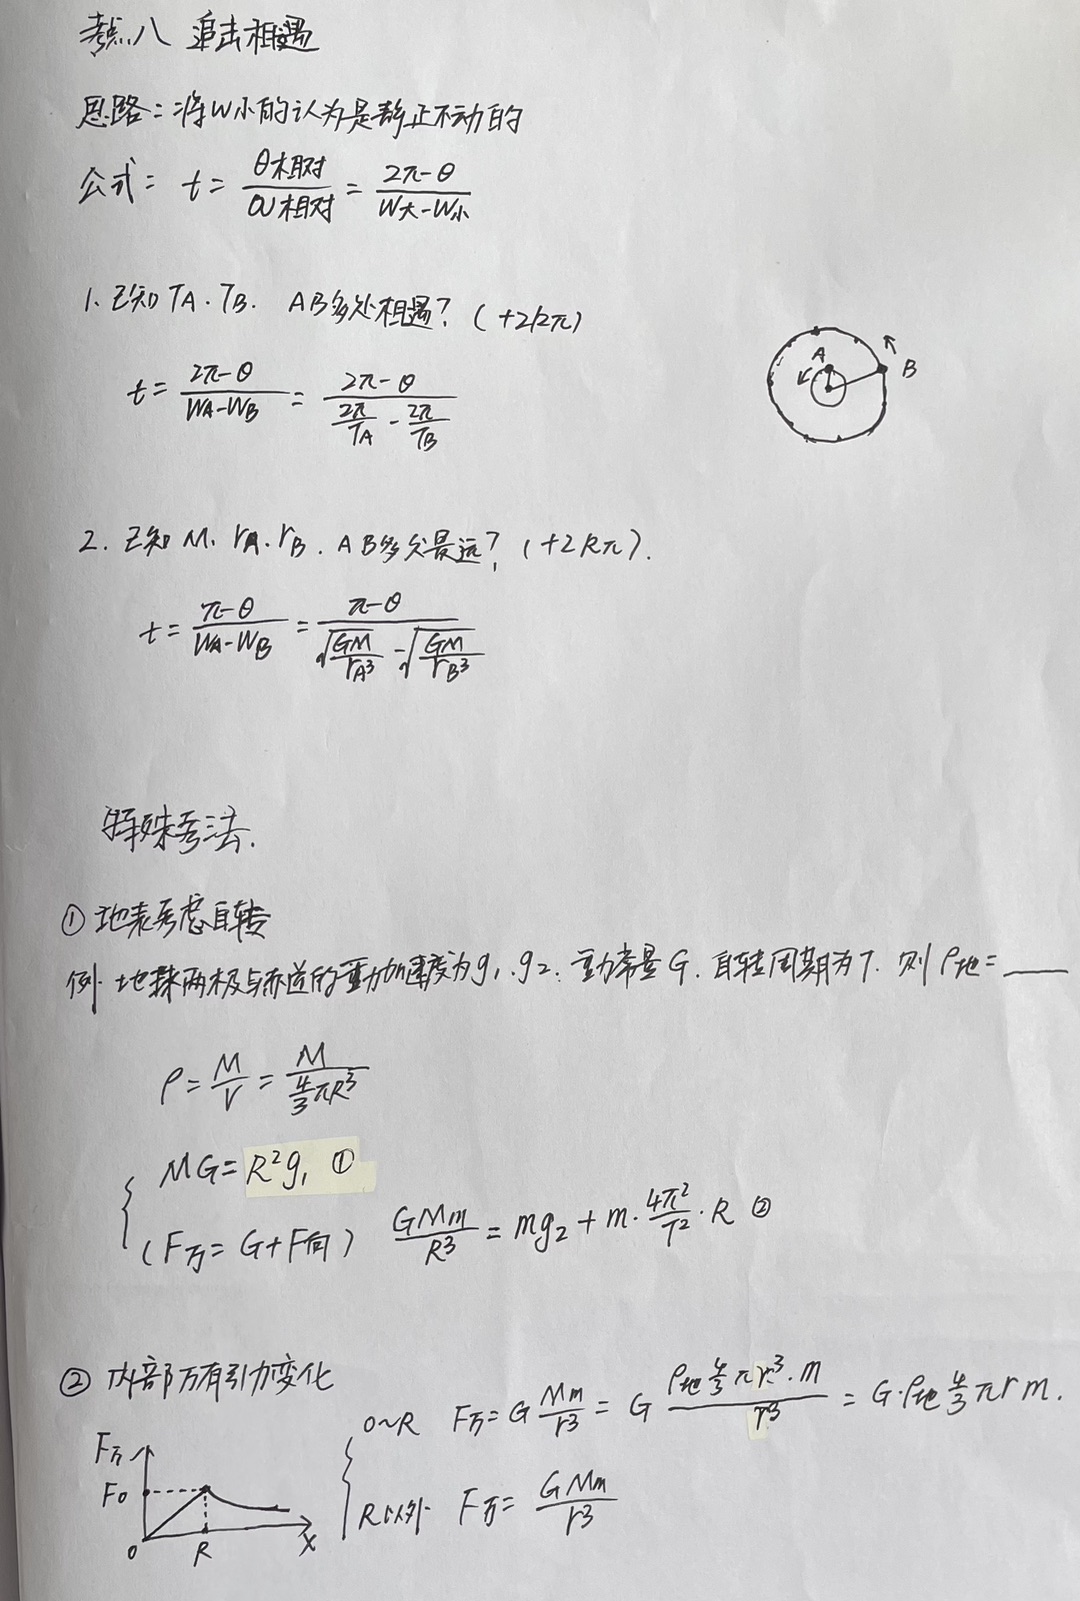 考点八 追击相遇
思路：将W小的认为是静止不动的
公式： t = θ相对/ω相对 = (2π-θ)/(W大-W小)
1、已知TA.TB. AB多久相遇？(+2kπ)
t = (2π-θ)/(WA-WB) = (2π-θ)/(2π/TA - 2π/TB)
A
B
2. 已知M、rA.rB. AB多久最远？(+2kπ).
t = (π-θ)/(WA-WB) = (π-θ)/(√(GM/rA³) - √(GM/rB³))
特殊考法.
① 地表考虑自转
例. 地球两极与赤道的重力加速度为g₁.g₂. 重力常量G. 自转周期为T. 则ρ地=____
ρ = M/V = M/(4/3 πR³)
MG = R²g₁ ①
(F万 = G+F向) GMm/R³ = mg₂ + m·4π²/T²·R ②
② 内部万有引力变化
0~R F万 = G Mm/r³ = G (ρ地 4/3 π r³·m)/r³ = G·ρ地 4/3 π r m.
R以外 F万 = GMm/r³
F万
F0
0
R
x